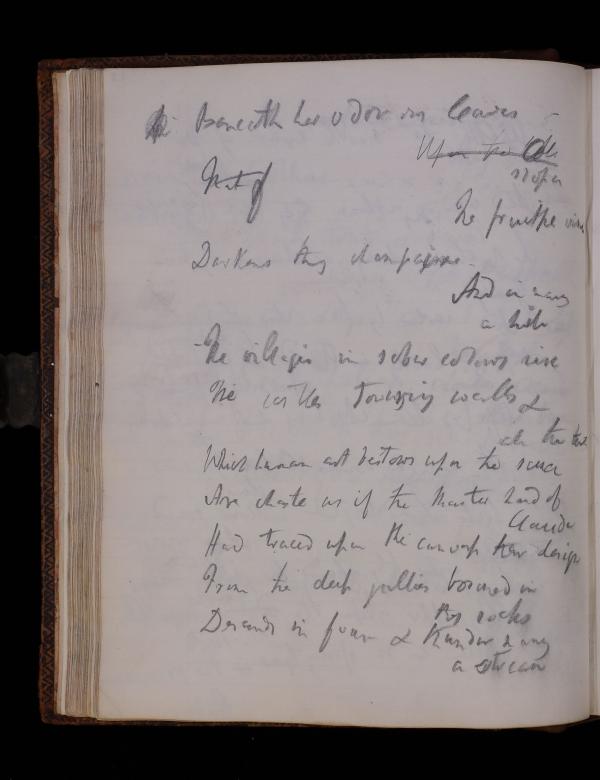 Beneath her odorous leaves -
Upon the
slopes
Not of
The fruitful vine
Darkens thy champaigne.
And in many
a
The villages in sober colours rise
The castles towering walls &
all that
Which human art bestows upon the scene
Are chaste as if the Master hand of
Claude
Had traced upon the canvass their design
From the deep gullies in
thy rocks
Descends in foam & thunder many
a stream